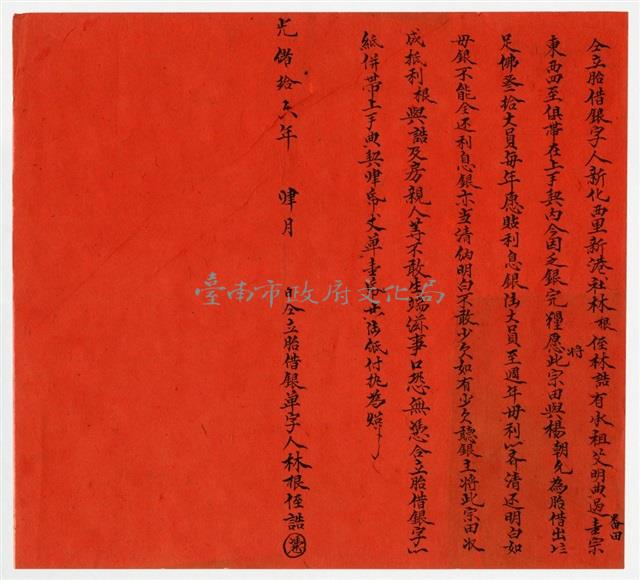 仝立胎借銀字人新化西里新港社林根侄林誥有承祖父明典過番田壹宗
東西四至俱帶在上手契內今因乏銀完糧愿將此宗田與楊朝允為胎借出
足佛叁拾大員每年愿貼利息銀陸大員至週年母利一齊清还明白如
母銀不能全还利息銀亦当清納明白不敢少欠如有少欠聽銀主將此宗田收
成抵利根與誥及房親人等不敢生端滋事口恐無憑仝立胎借銀字一
紙併帶上手典契肆帋丈單壹共陸紙付执為炤
光緒拾六年 肆月 日仝立胎借銀單字人林根侄誥
臺南市政府文化局